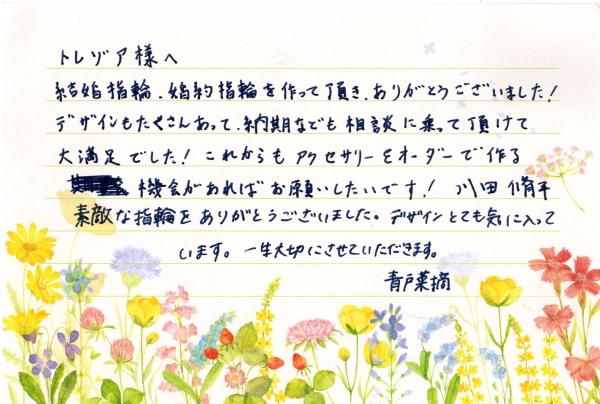 トレゾア様へ
結婚指輪、婚約指輪を作って頂き、ありがとうございました!
デザインもたくさんあって、納期なども相談に乗って頂けて
大満足でした! これからもアクセサリーをオーダーで作る
機会があればお願いしたいです! 川田 脩平
素敵な指輪をありがとうございました。デザインとても気に入って
います。一生大切にさせていただきます。
青戸菜摘